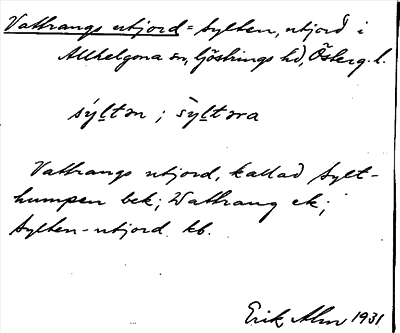 Vathrangs utjord = Sylten, utjord i
Allhelgona sn, Göstrings hd, Österg. l.
sýltən ; sýltəra
Vathrangs utjord, kallad Sylt-
humpen bek; Wathrang ek;
Sylten-utjord kb.
Erik Alm 1931